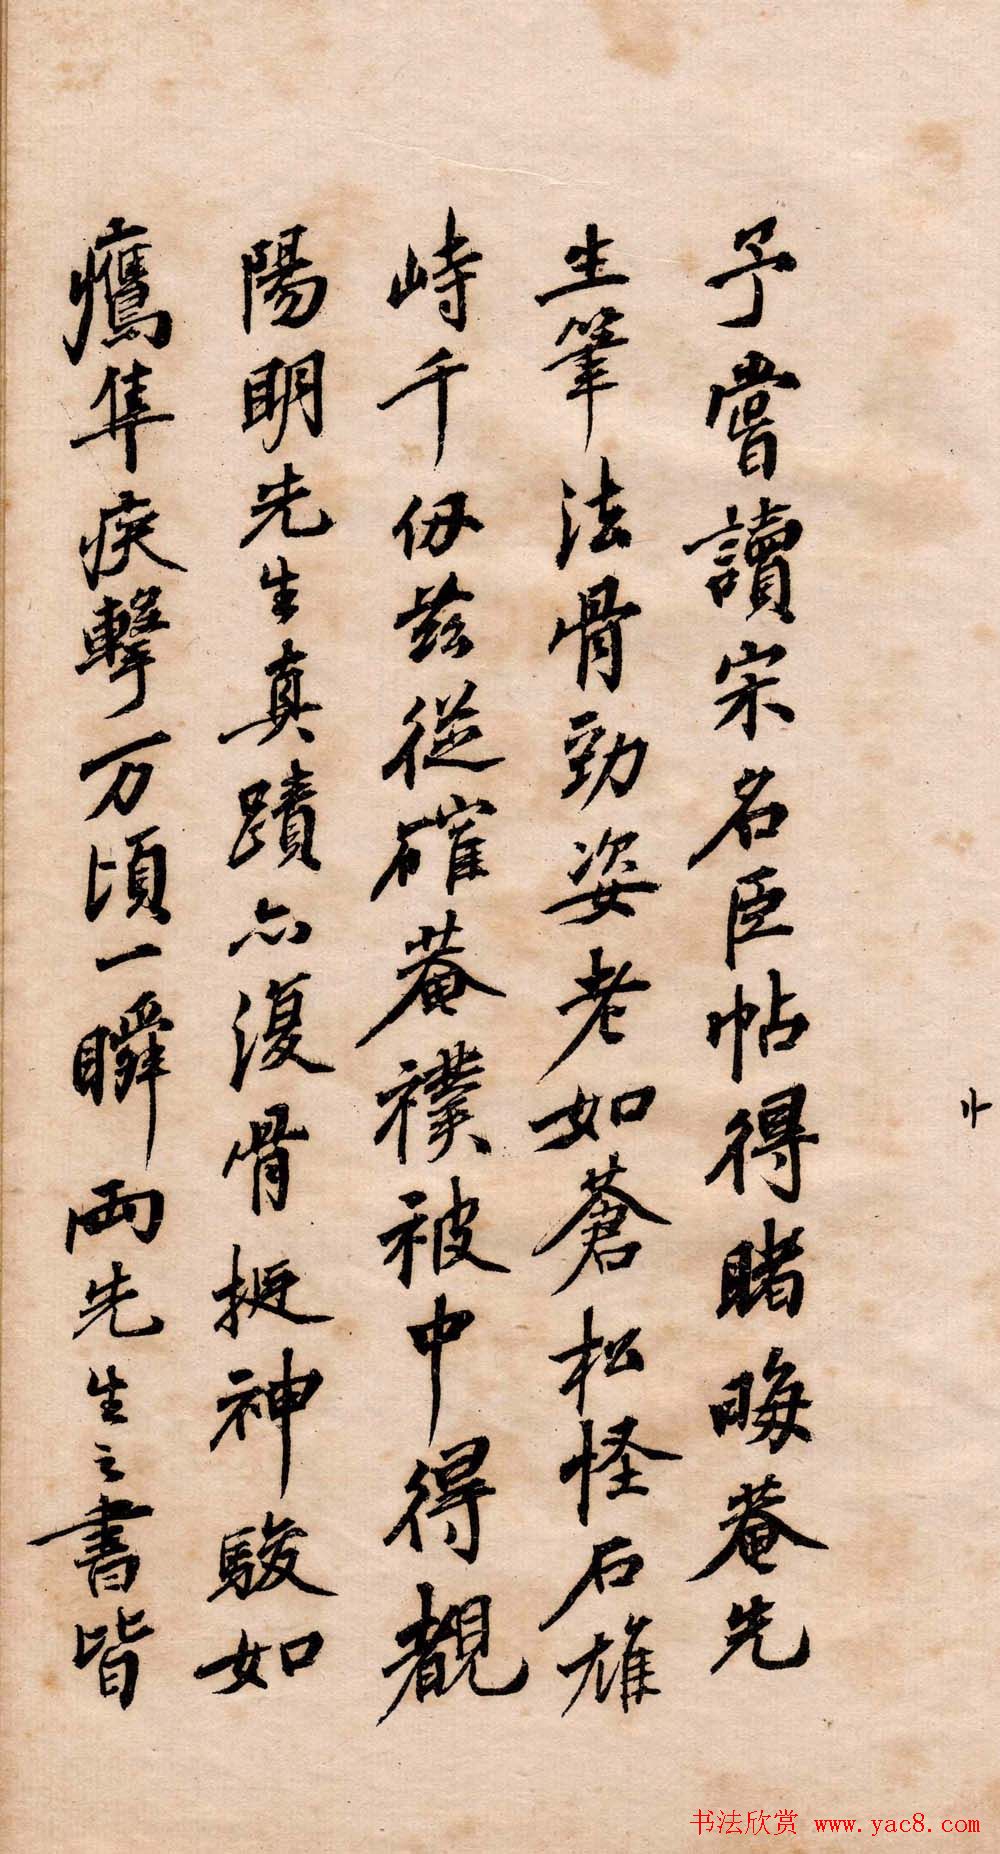 予嘗讀宋名臣帖得睹晦菴先
生筆法骨勁姿老如蒼松怪石雄
峙千仞茲從確菴襆被中得覩
陽明先生真蹟亦復骨挺神駿如
鷹隼疾擊万頃一瞬兩先生之書皆
书法欣赏 www.yac8.com